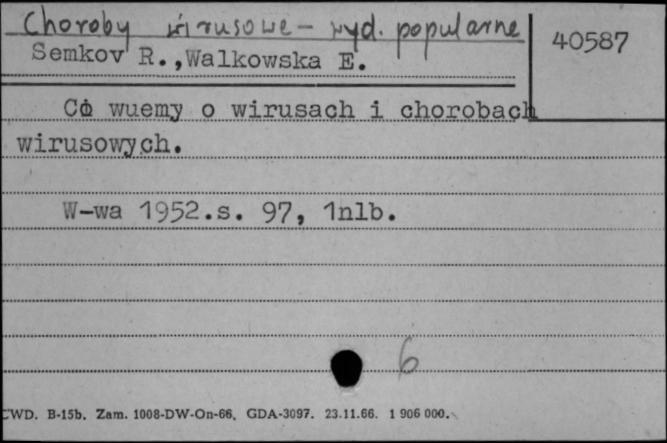 Choroby wirusowe - wyd. popularne
40587
Semkov R.,Walkowska E.
Co wuemy o wirusach i chorobach
wirusowych.
W-wa 1952.s. 97, 1nlb.
6
CWD. B-15b. Zam. 1008-DW-On-66, GDA-3097. 23.11.66. 1 906 000.